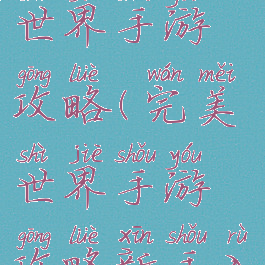 世界手游
gōng lüè wán měi
攻略(完美
shì jiè shǒu yóu
世界手游
gōng lüè xīn shǒu rù
攻略新手入